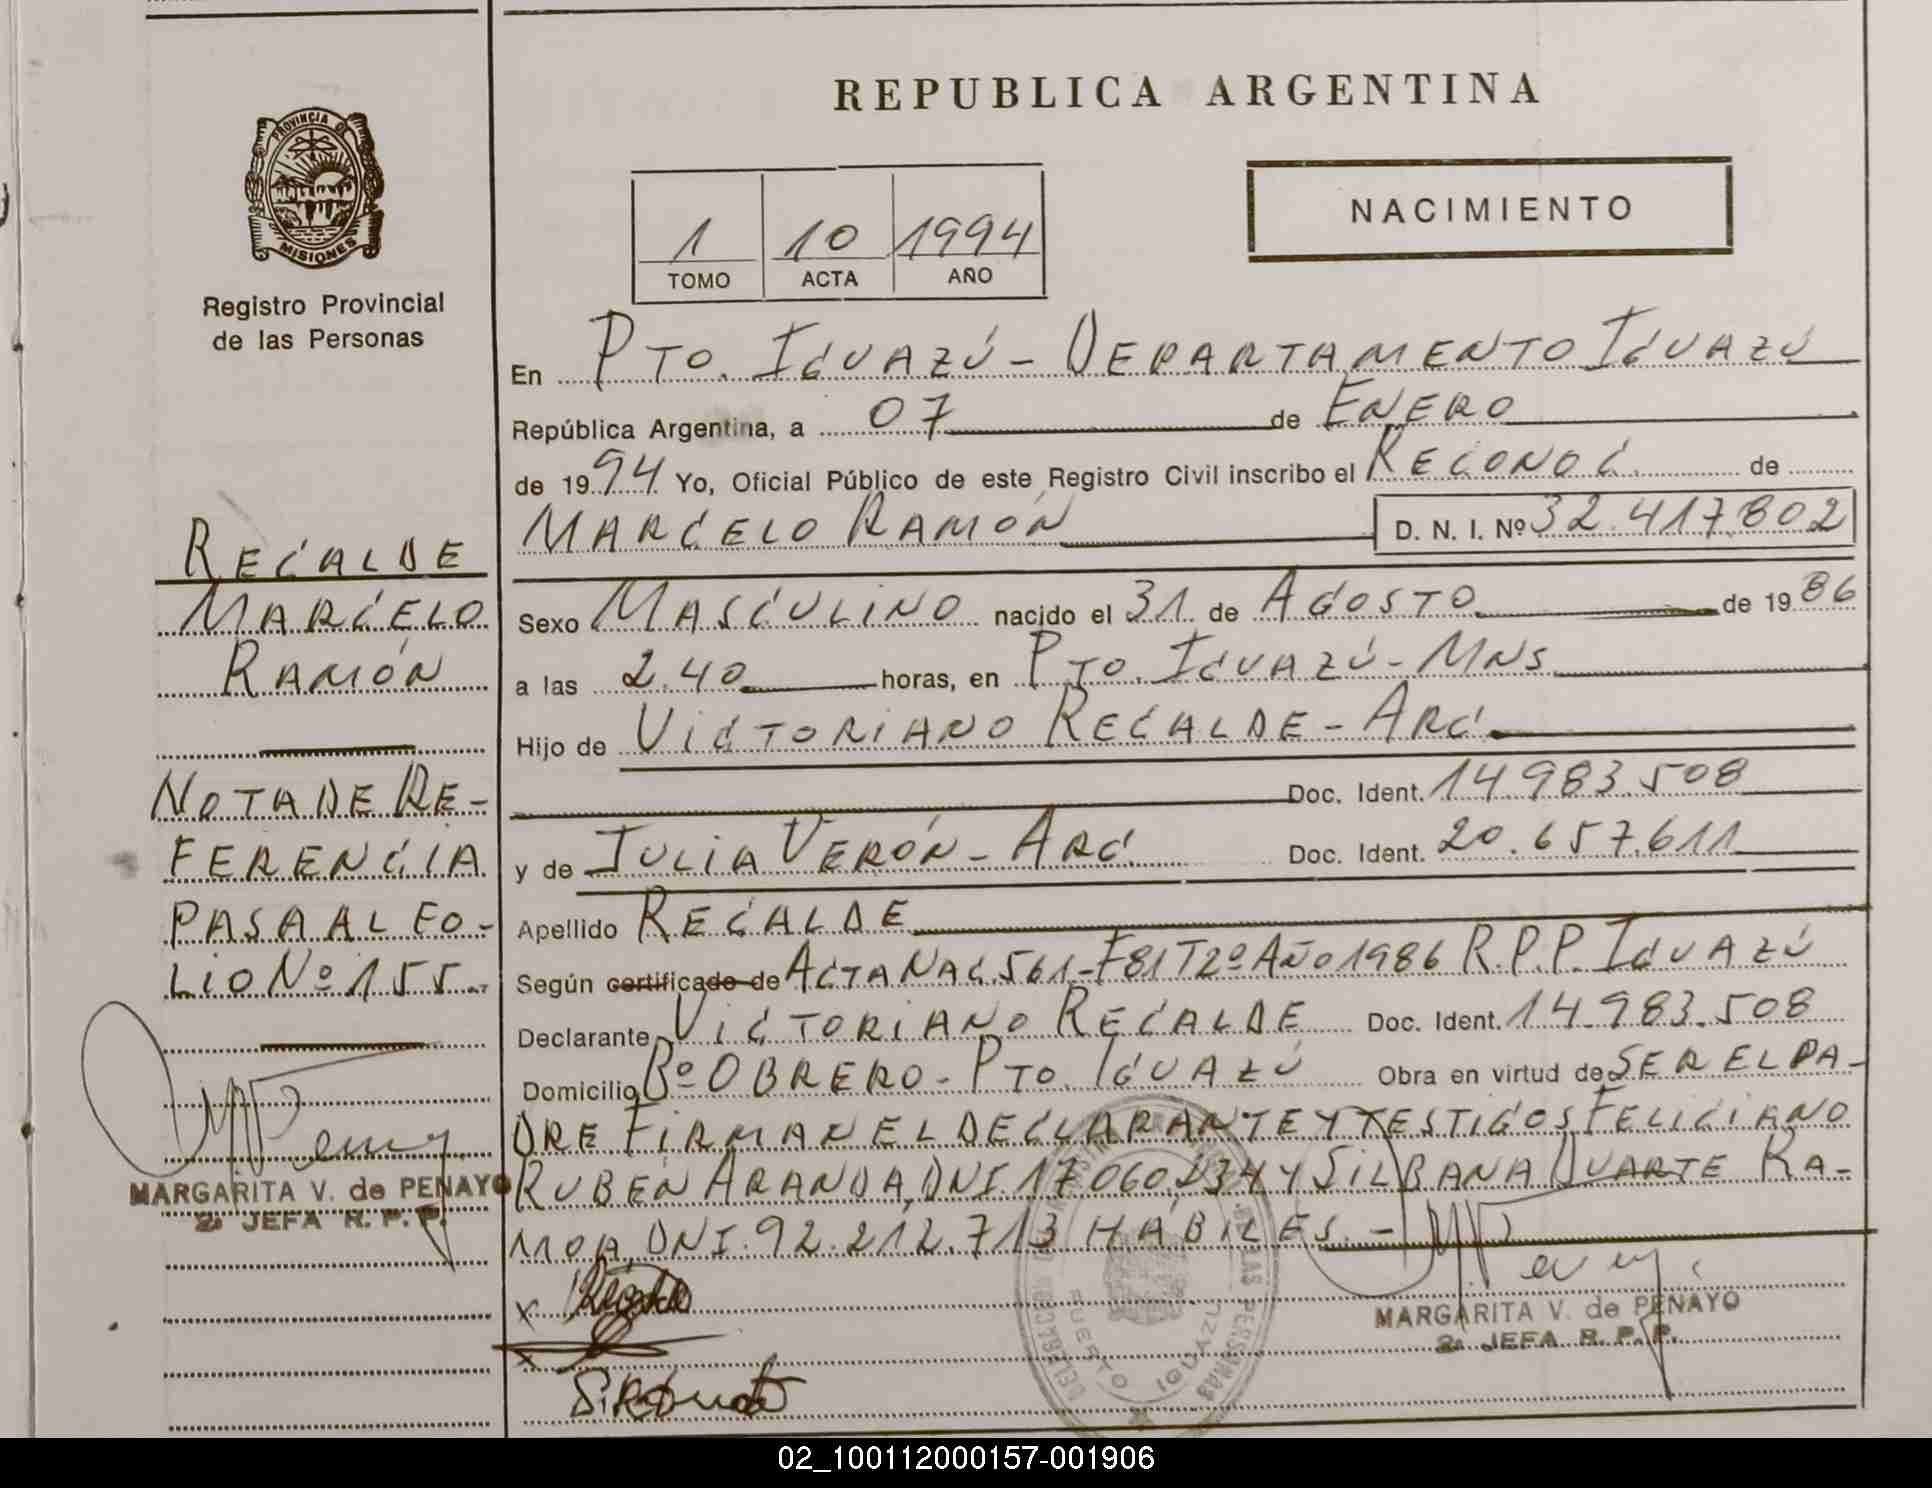 REPUBLICA ARGENTINA
PROVINCIA DE
MISIONES
Registro Provincial
de las Personas
1 10 1994
TOMO ACTA AÑO
NACIMIENTO
En PTO. IGUAZÚ - DEPARTAMENTO IGUAZÚ
República Argentina, a 07 de ENERO
de 1994 Yo, Oficial Público de este Registro Civil inscribo el RECONOC. de
MARCELO RAMÓN D. N. I. Nº 32.417.802
Sexo MASCULINO nacido el 31 de AGOSTO de 1986
a las 2.40 horas, en PTO. IGUAZÚ - MNS
Hijo de VICTORIANO RECALDE - ARG
Doc. Ident. 14.983.508
y de JULIA VERÓN - ARG. Doc. Ident. 20.657.611
Apellido RECALDE
Según certificado de ACTA NAC 561 - F81 T2º AÑO 1986 R.P.P. IGUAZÚ
Declarante VICTORIANO RECALDE Doc. Ident. 14.983.508
Domicilio Bº OBRERO - PTO. IGUAZÚ Obra en virtud de SER EL PA-
DRE FIRMAN EL DECLARANTE Y TESTIGOS FELICIANO
RUBEN ARANDA, DNI. 17.060.234 Y SILBANA DUARTE RA-
MOA, DNI. 92.212.713 HÁBILES. -
RECALDE
MARCELO
RAMÓN
NOTA DE RE-
FERENCIA
PASA AL FO-
LIO Nº 155.-
MARGARITA V. de PENAYO
2a JEFA R. P. P.
MARGARITA V. de PENAYO
2a JEFA R. P. P.
DE LAS PERSONAS
PUERTO IGUAZU
02_100112000157-001906